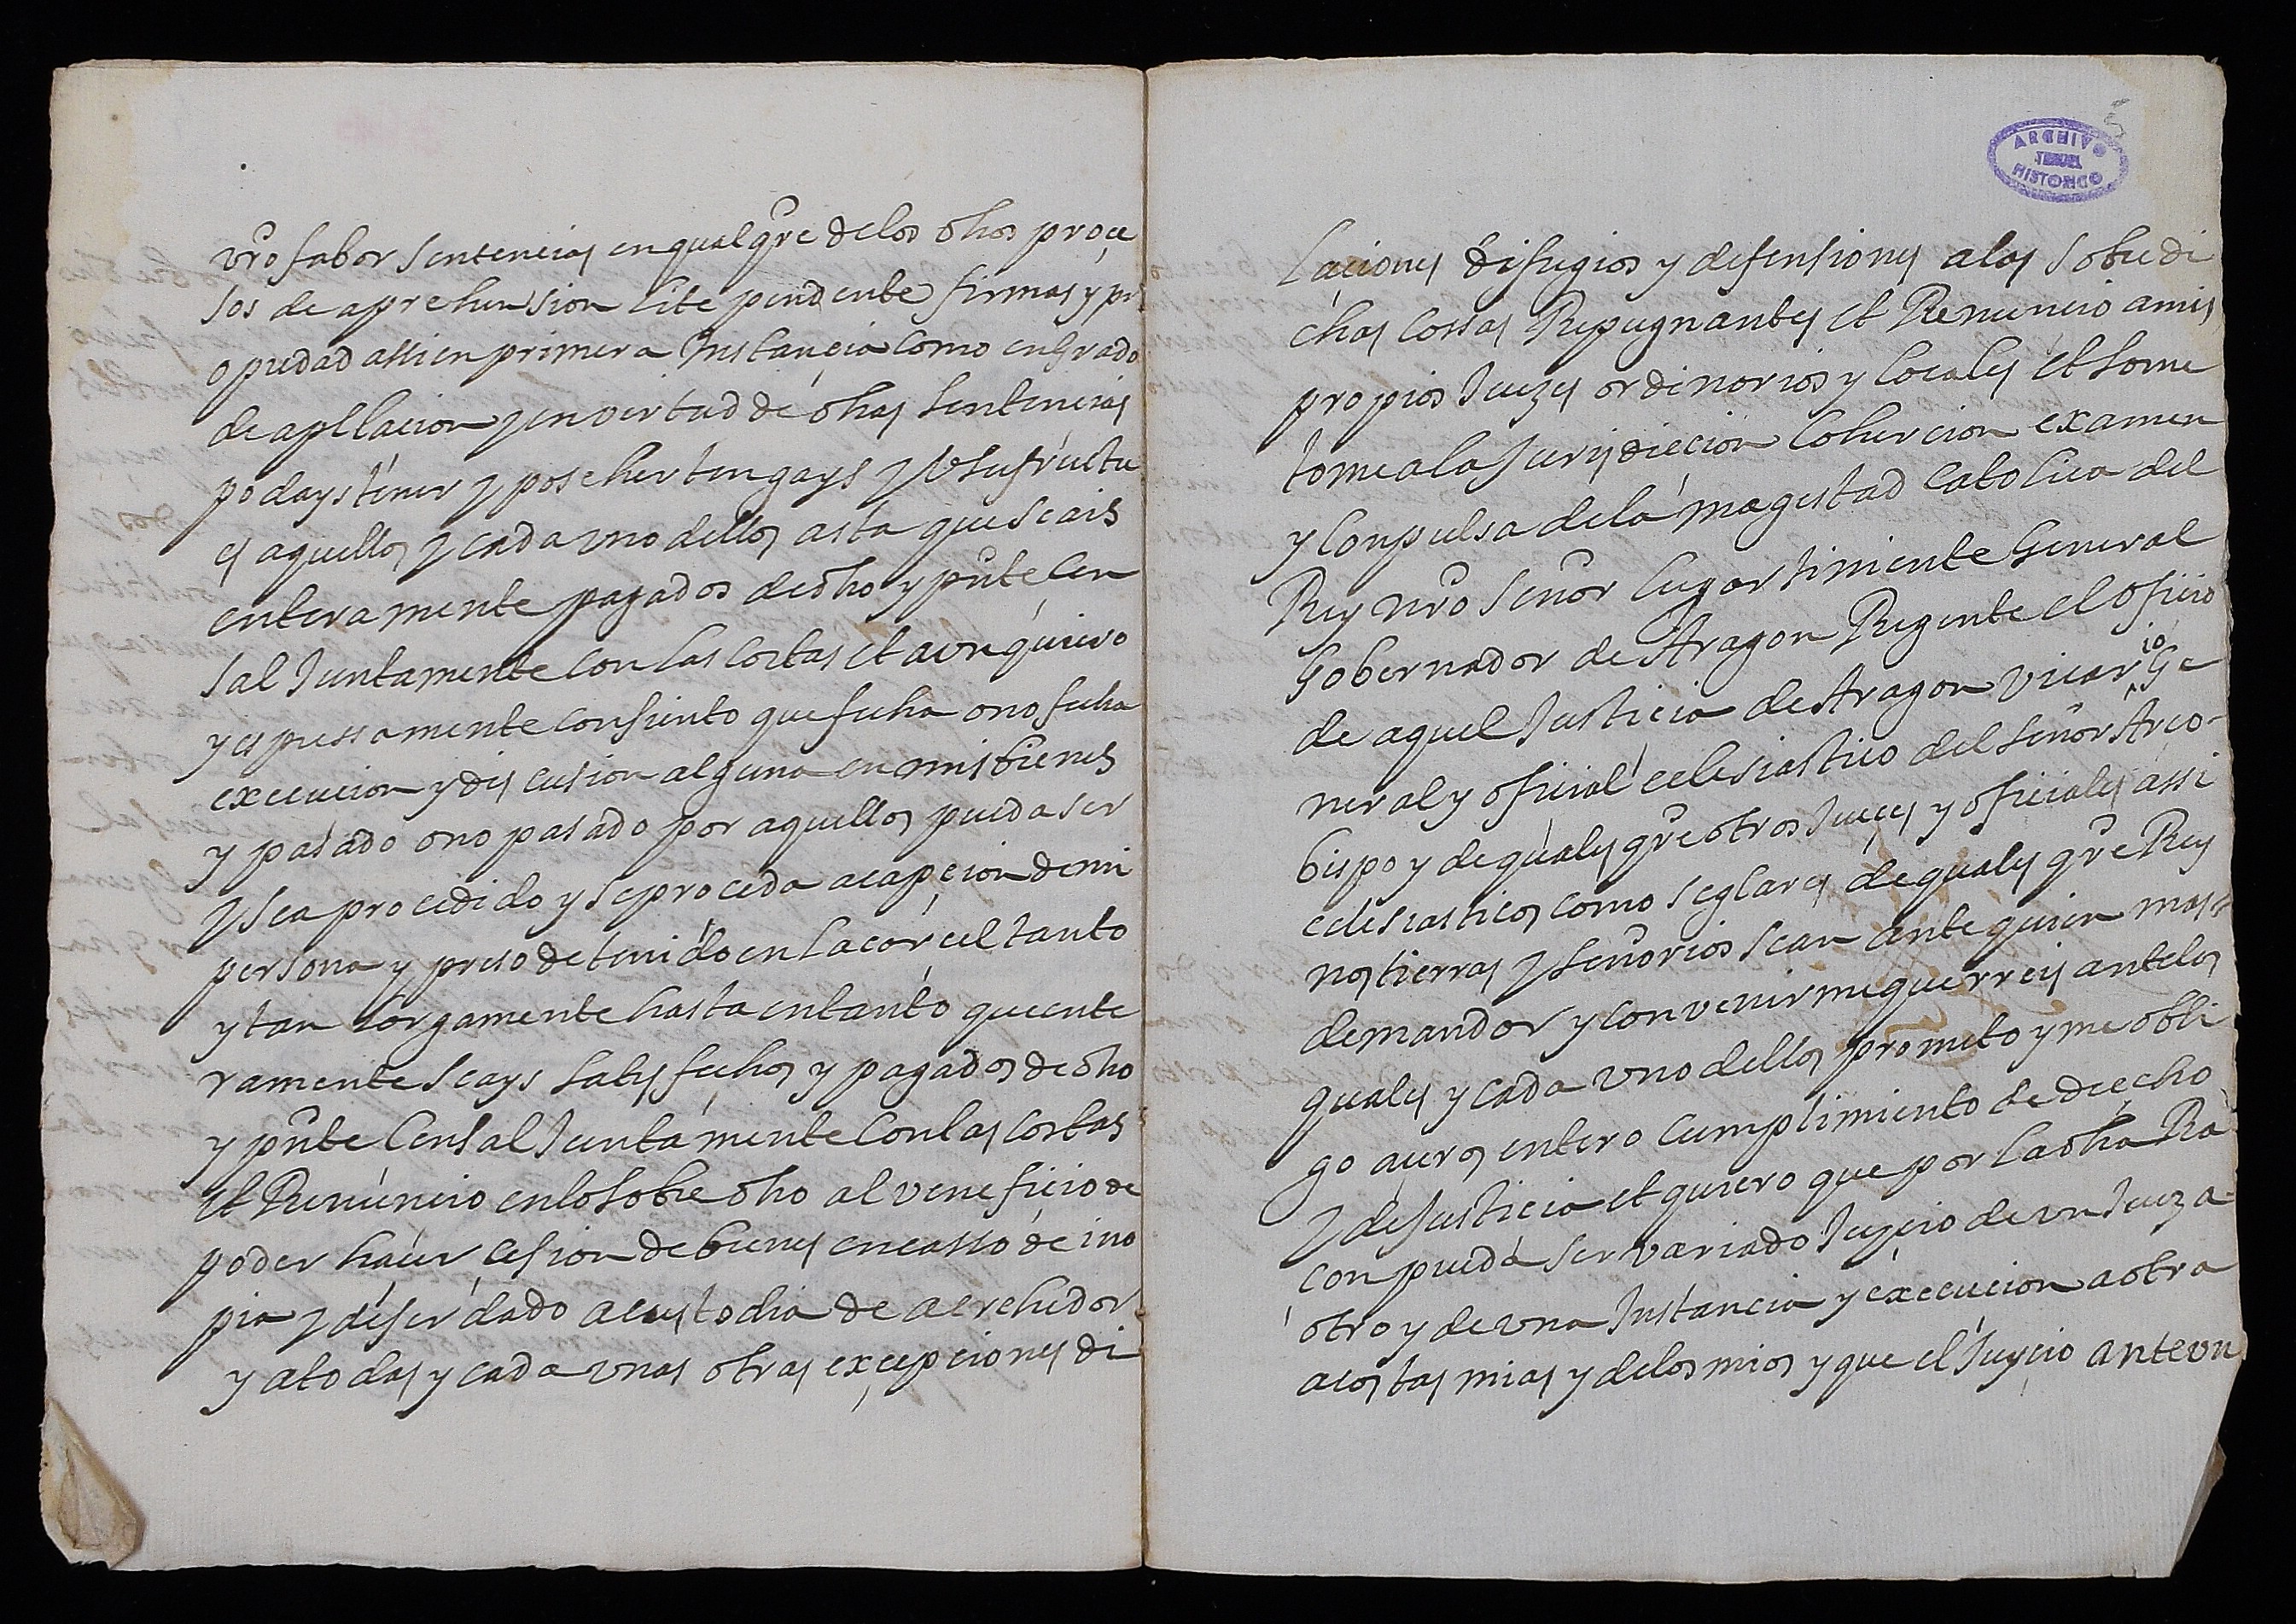 vro fabor sentencias en qualqre de los dhos proce
sos de aprehension lite pendente firmas y pr
opiedad assi en primera Instancia como en Grado
de apllacion y en virtud de dhas sentencias
podays tener y posseher tengays y Vsufructu
es aquellos y cada vno dellos asta que seais
enteramente pagados de dho y pnte Cen
sal Juntamente con las costas et aun quiero
y espressamente consiento que fecha o no fecha
execucion y discusion alguna en mis bienes
y pasado o no pasado por aquellos pueda ser
y sea procedido y se proceda a capcion de mi
persona y preso detenido en la carcel tanto
y tan largamente hasta en tanto que ente
ramente seays satisfechos y pagados de dho
y pnte Censal Juntamente con las costas
et Renuncio en lo sobre dho al veneficio de
poder hacer cesion de bienes en casso de ino
pia y de ser dado a custodia de acrehedor
y a todas y cada vnas otras excepciones di
laciones difugios y defensiones a las sobredi
chas cossas Repugnantes et Renuncio a mis
propios Juezes ordinarios y locales et some
tome a la Jurisdiccion Cohercion examen
y Conpulsa de la magestad Catolica del
Rey nro Señor lugartiniente General
Gobernador de Aragon Regente el oficio
de aquel Justicia de Aragon vicario Ge
neral y oficial eclesiastico del señor Arco-
bispo y de quales qre otros Jueces y oficiales assi
eclesiasticos como seglares de quales qre Rey
nos tierras y señorios sean ante quien mas
demandar y convenirme querreis ante los
quales y cada vno dellos prometo y me obli
go aceros entero cumplimiento de drecho
y de Justicia et quiero que por la dha Ra
con pueda ser variado Juycio de vn Juez a
otro y de vna Instancia y execucion a otra
a costas mias y de los mios y que el Juycio ante vn
ARCHIVO
TERUEL
HISTORICO